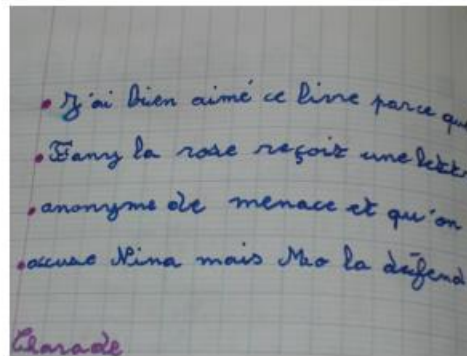 • J'ai bien aimé ce livre parce que
• Fany la rose reçoit une lettr
• anonyme de menace et qu'on
• accuse Nina mais Mao la défend
Charade